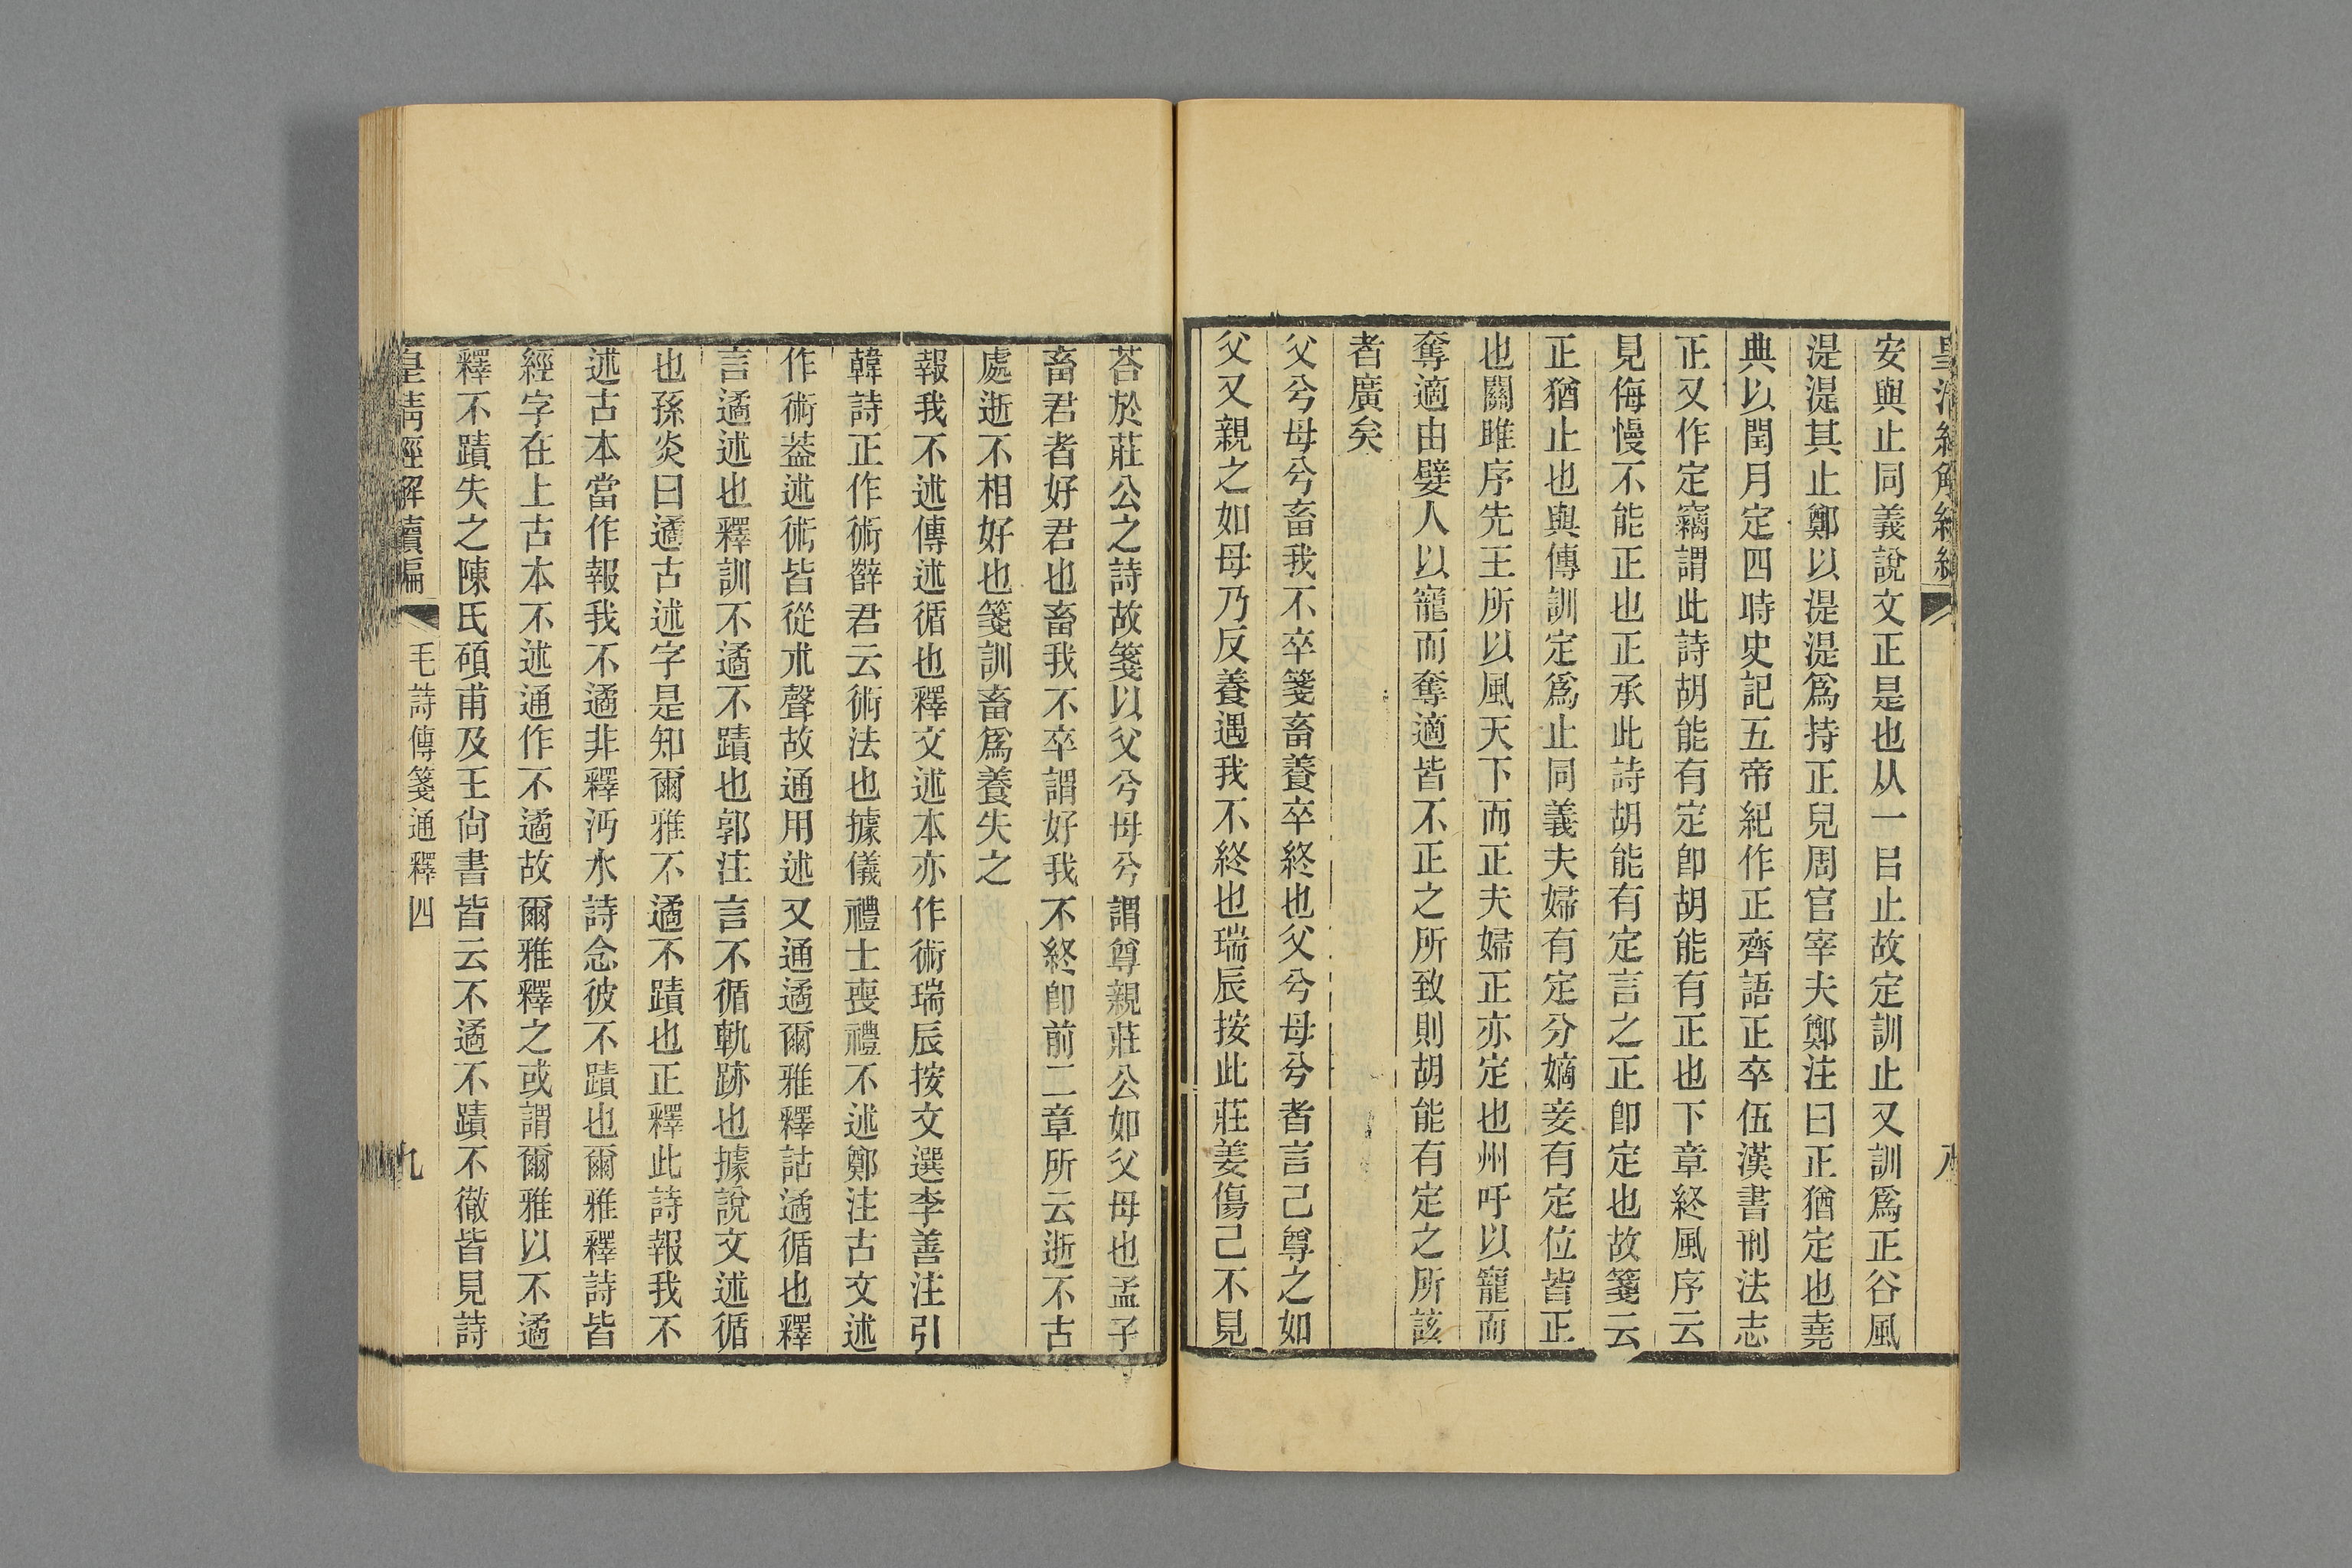 皇清經解續編
八
安與止同義說文正是也从一㠯止故定訓止又訓爲正谷風
湜湜其止鄭以湜湜爲持正皃周官宰夫鄭注曰正猶定也堯
典以閏月定四時史記五帝紀作正齊語正卒伍漢書刑法志
正又作定竊謂此詩胡能有定卽胡能有正也下章終風序云
見侮慢不能正也正承此詩胡能有定言之正卽定也故箋云
正猶止也與傳訓定爲止同義夫婦有定分嫡妾有定位皆正
也關雎序先王所以風天下而正夫婦正亦定也州吁以寵而
奪適由嬖人以寵而奪適皆不正之所致則胡能有定之所該
者廣矣
父兮母兮畜我不卒箋畜養卒終也父兮母兮者言己尊之如
父又親之如母乃反養遇我不終也瑞辰按此莊姜傷己不見
荅於莊公之詩故箋以父兮母兮謂尊親莊公如父母也孟子
畜君者好君也畜我不卒謂好我不終卽前二章所云逝不古
處逝不相好也箋訓畜爲養失之
報我不述傳述循也釋文述本亦作術瑞辰按文選李善注引
韓詩正作術薛君云術法也據儀禮士喪禮不述鄭注古文述
作術葢述術皆從朮聲故通用述又通遹爾雅釋詁遹循也釋
言遹述也釋訓不遹不蹟也郭注言不循軌跡也據說文述循
也孫炎曰遹古述字是知爾雅不遹不蹟也正釋此詩報我不
述古本當作報我不遹非釋沔水詩念彼不蹟也爾雅釋詩皆
經字在上古本不述通作不遹故爾雅釋之或謂爾雅以不遹
釋不蹟失之陳氏碩甫及王尙書皆云不遹不蹟不徹皆見詩
皇清經解續編
毛詩傳箋通釋四
九